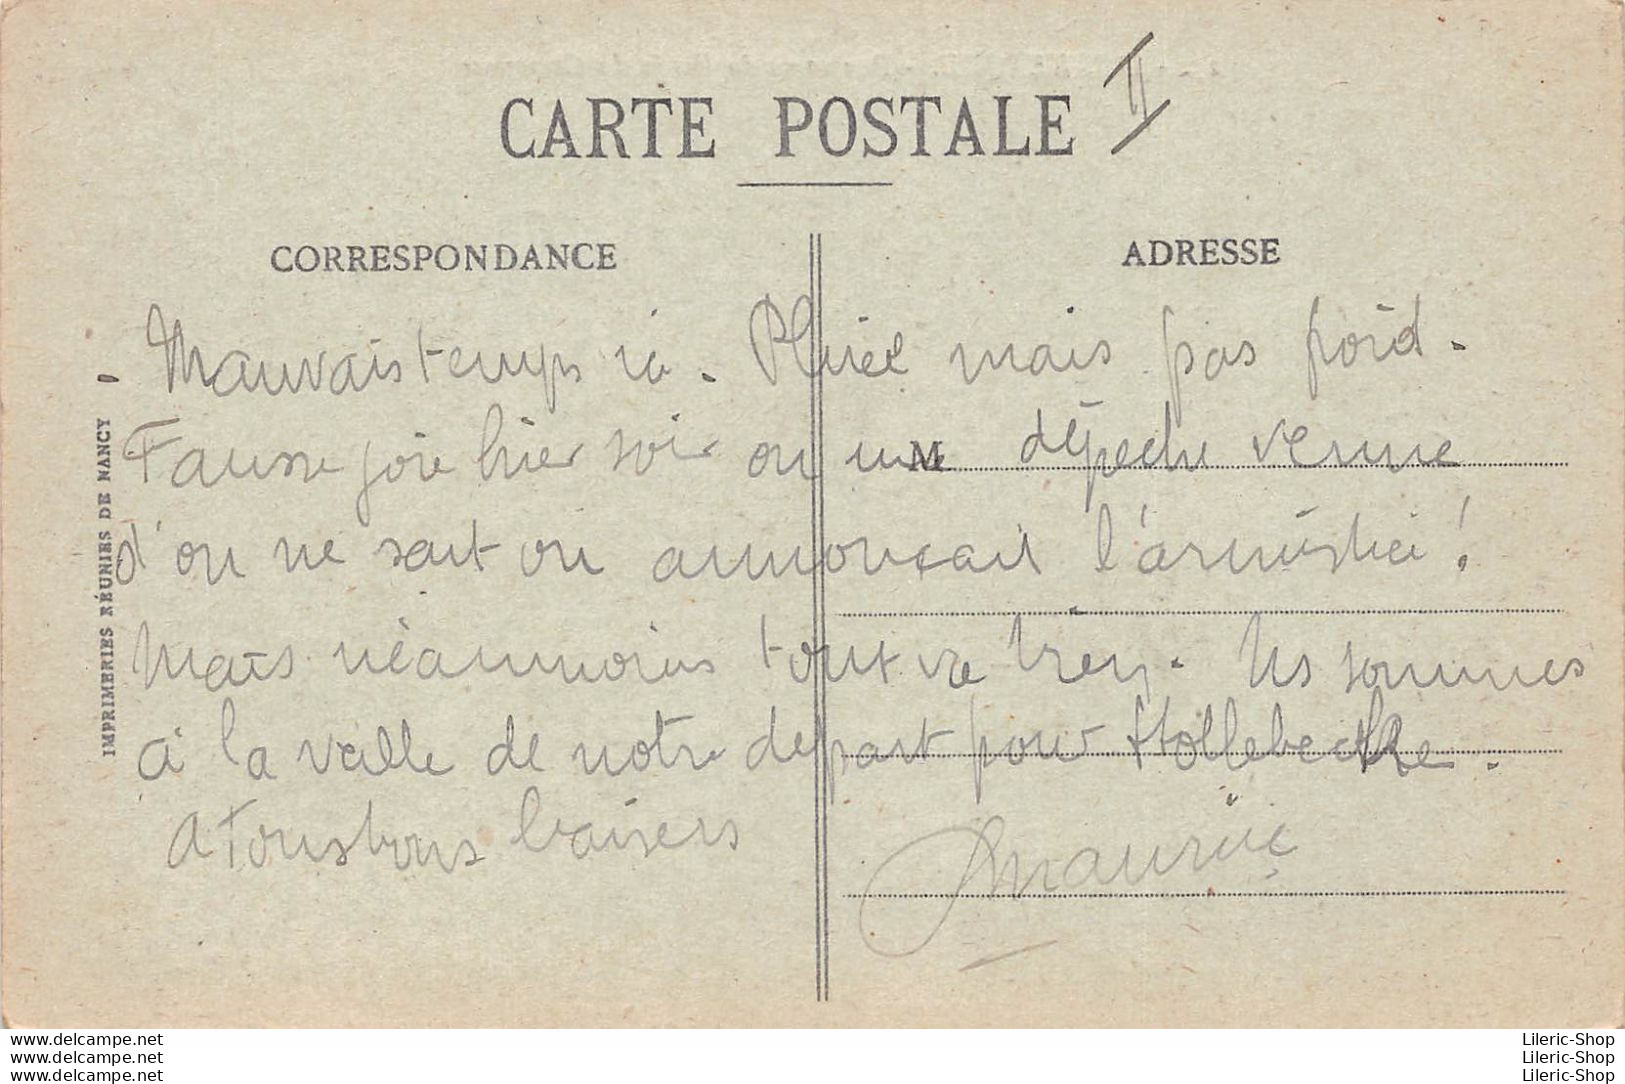 CARTE POSTALE II
CORRESPONDANCE
ADRESSE
Mauvais temps ici. Pluie mais pas froid.
Fausse joie hier soir où une dépeche venue
M
d'on ne sait où annonçait l'armistice !
Mais néanmoins tout va bien. Ns sommes
à la veille de notre départ pour Hollebecke.
A tous bons baisers
Maurice
IMPRIMERIES RÉUNIES DE NANCY
www.delcampe.net
www.delcampe.net
www.delcampe.net
Lileric-Shop
Lileric-Shop
Lileric-Shop